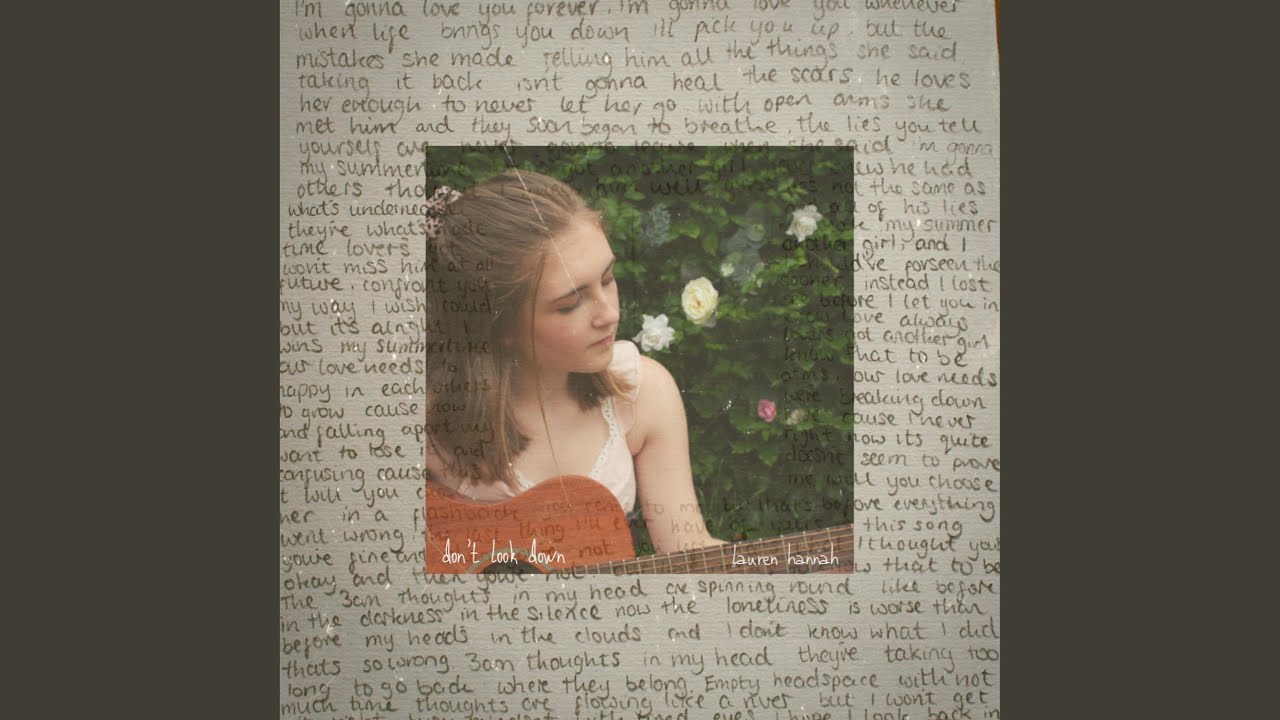 I'm gonna love you forever. I'm gonna love you whenever
when life brings you down ill pick you up. but the
mistakes she made telling him all the things she said
taking it back isnt gonna heal the scars. he loves
her enough to never let her go. with open arms she
met him and they soon began to breathe. the lies you tell
yourself are never gonna leave when she said I'm gonna
my summertime got another girl knew he had
others tho him well not the same as
what's underneath all of his lies
they're what's made my summer
time lovers got another girl, and I
wont miss him at all could've forseen the
future, confront you sooner, instead I lost
my way I wish I could see before I let you in
but it's alright I love always
wins my summertime lovers got another girl
our love needs to know that to be
happy in each others arms. our love needs
to grow cause now were breaking down
and falling apart my love cause I never
want to lose it and right now its quite
confusing cause this doesnt seem to prove
t will you me well you choose
her in a flashback you come to me but thats before everything
went wrong the last thing ill ever have of this song
you're fine and not I thought you
don't look down lauren hannah
okay and then you're not that to be
The 3am thoughts in my head are spinning round like before
in the darkness in the silence now the loneliness is worse than
before my heads in the clouds and I dont know what I did
thats so wrong 3am thoughts in my head theyre taking too
long to go back where they belong. Empty headspace with not
much time thoughts are flowing like a river but I wont get
tired eyes I hope I look back in